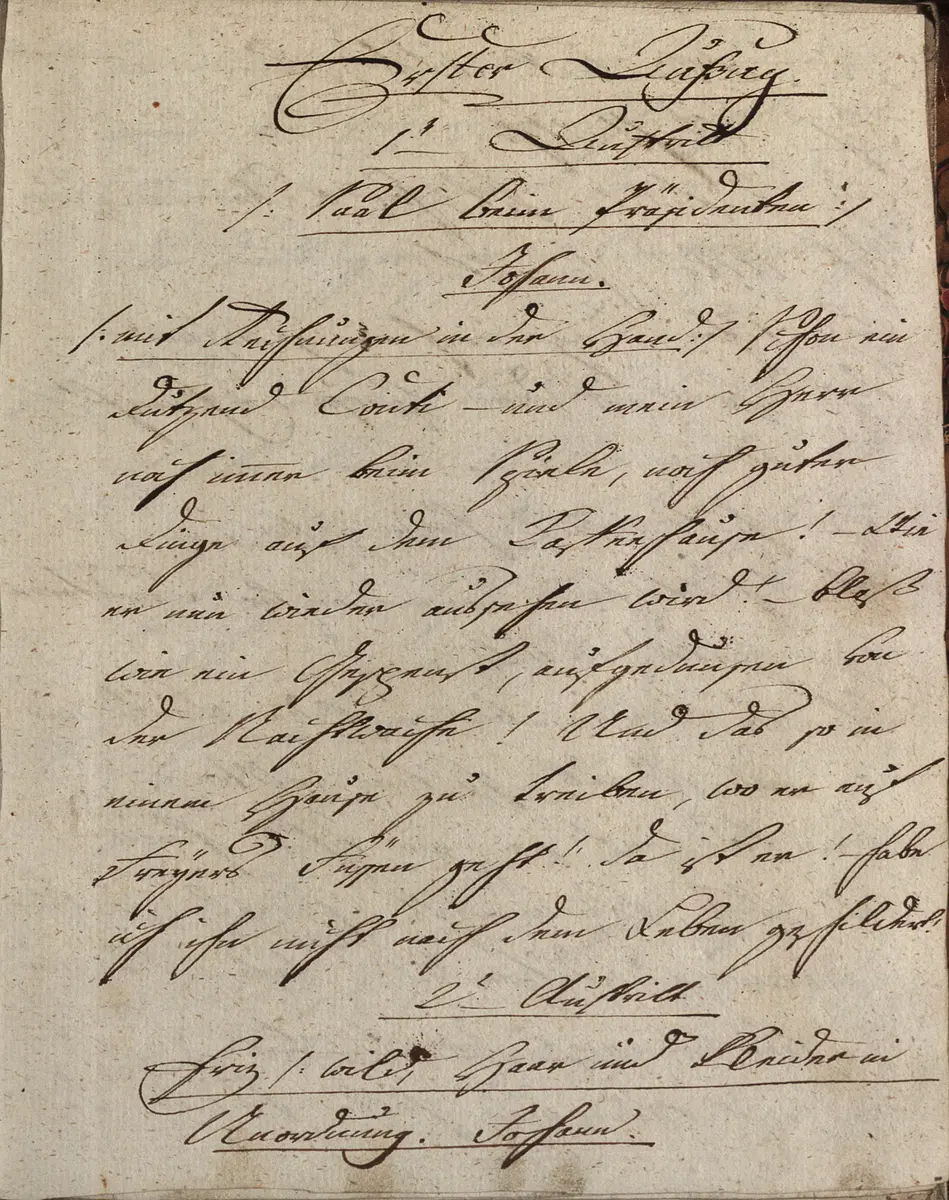 Erster Aufzug.
1r Auftritt
/: Saal beim Präsidenten :/
Johann.
/: mit Rechnungen in der Hand :/ Schon ein
Dutzend Conti – und mein Herr
noch immer beim Spiele, noch guter
Dinge auf dem Kaffeehause! – Wie
er nun wieder aussehen wird! – blaß
wie ein Gespenst, aufgedunsen von
der Nachtwache! Und das so in
einem Hause zu treiben, wo er auf
Freyers Füßen geht! da ist er! – habe
ich ihn nicht nach dem Leben geschildert
2r Auftritt
Friz /: wild, Haar und Kleider in
Unordnung. Johann.